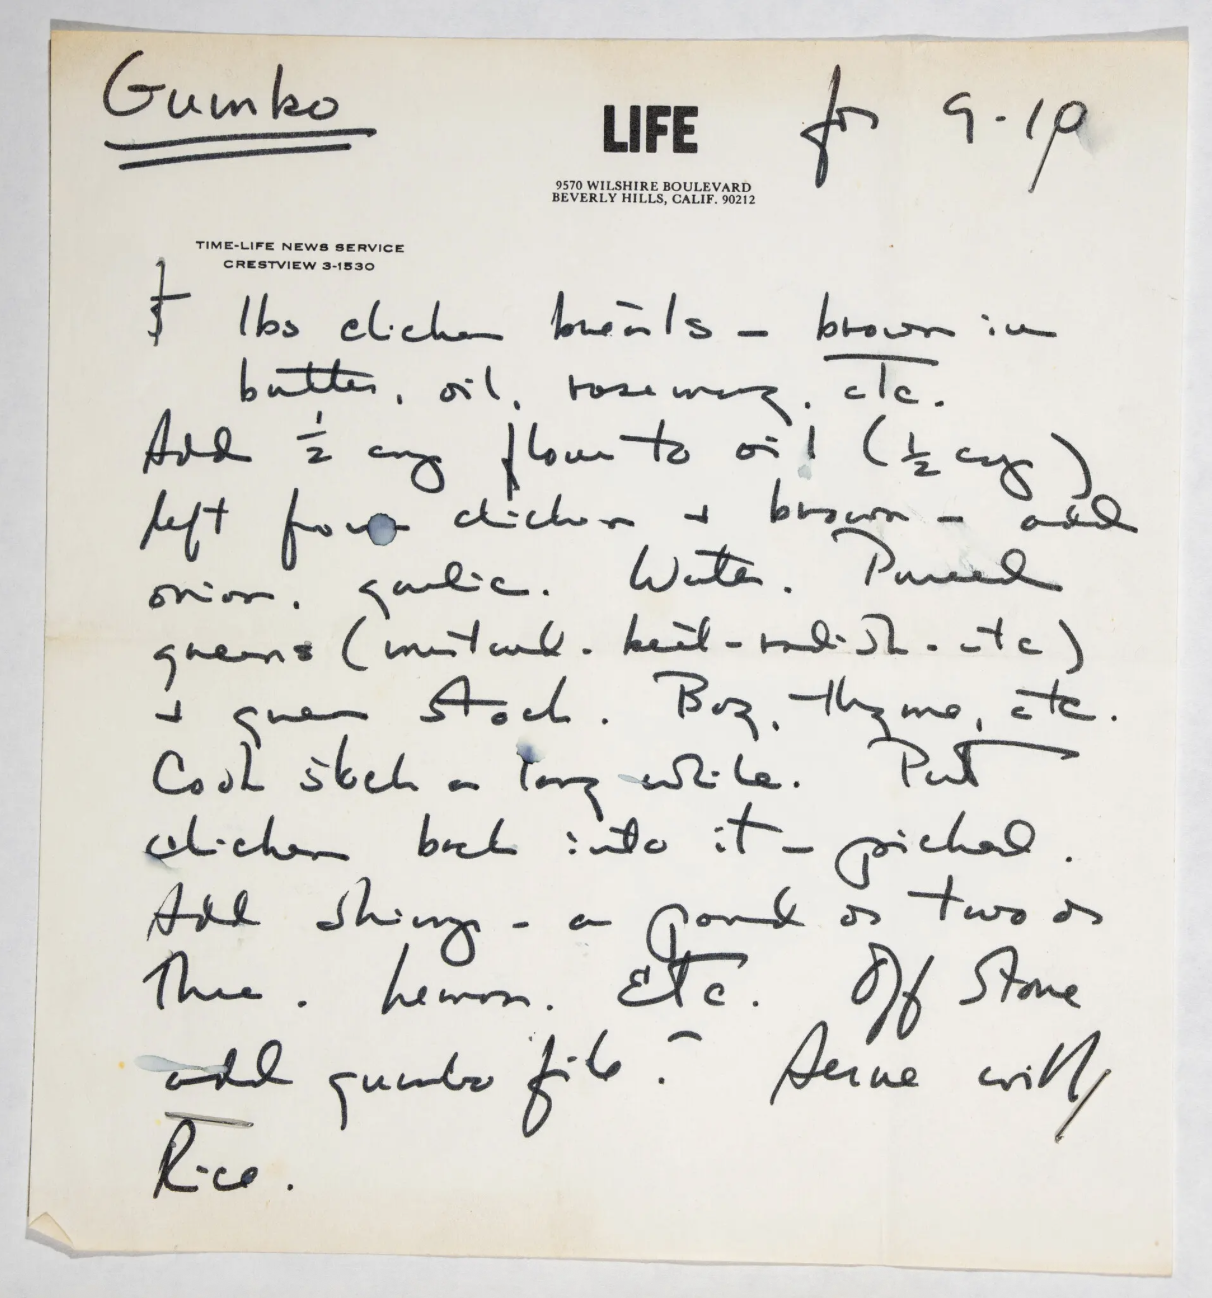 Gumbo
for 9-10
LIFE
9570 WILSHIRE BOULEVARD
BEVERLY HILLS, CALIF. 90212
TIME-LIFE NEWS SERVICE
CRESTVIEW 3-1530
lbs chicken breasts – brown in
butter, oil, rosemary, etc.
Add ½ cup flour to oil (½ cup)
left from chicken + brown – add
onion, garlic. Water. Pureed
greens (mustard - beet - radish - etc)
+ green stock. Bay, thyme, etc.
Cook stock a long while. Put
chicken back into it – picked.
Add shrimp – a pound or two or
three. Lemon. Etc. Off stove
add gumbo file. Serve with
Rice.